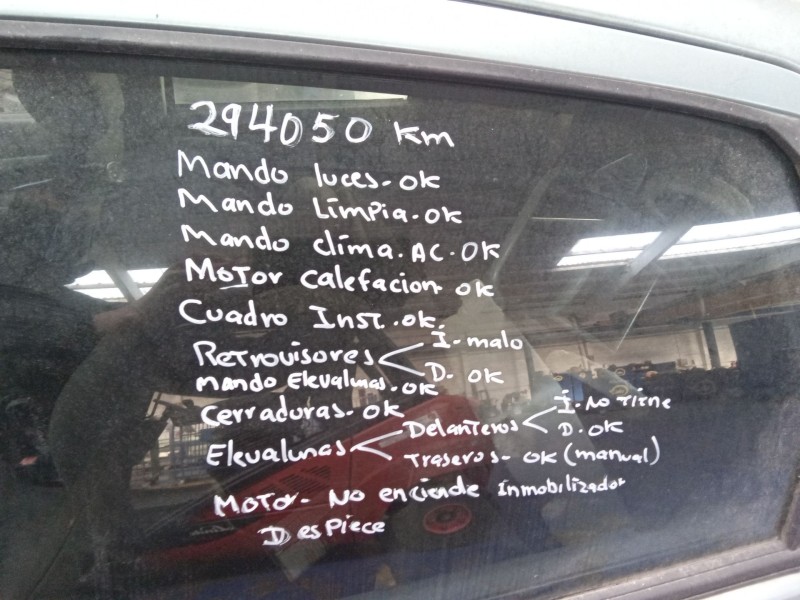 294050 km
Mando luces-OK
Mando Limpia-OK
Mando clima.AC-OK
Motor calefacion OK
Cuadro Inst.OK.
Retrovisores I-malo
D-OK
Mando Elevalunas-OK
Cerraduras-OK
Elevalunas Delanteros I-No Tiene
D.OK
Traseros-OK (manual)
MOTOR-No enciende Inmobilizador
Despiece